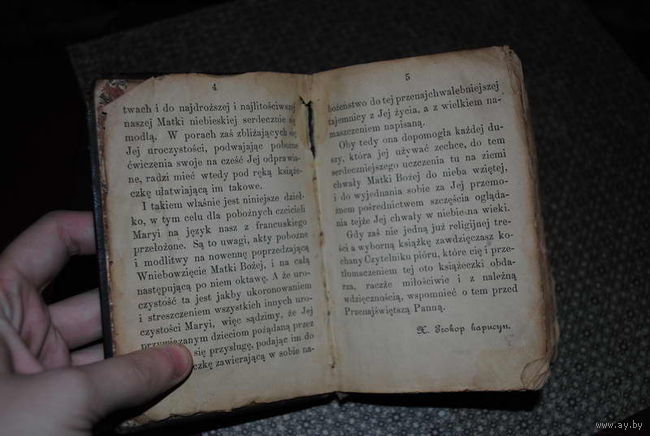 4
twach i do najdroższej i najlitościwszej
naszej Matki niebieskiej serdecznie się
modlą. W porach zaś zbliżających się
Jej uroczystości, podwajając pobożne
ćwiczenia swoje na cześć Jej odprawia-
ne, radzi mieć wtedy pod ręką książe-
czkę ułatwiającą im takowe.
I takiem właśnie jest niniejsze dzieł-
ko, w tym celu dla pobożnych czcicieli
Maryi na język nasz z francuskiego
przełożone. Są to uwagi, akty pobożne
i modlitwy na nowennę poprzedzającą
Wniebowzięcie Matki Bożej, i na całą
następującą po niem oktawę. A że uro-
czystość ta jest jakby ukoronowaniem
i streszczeniem wszystkich innych uro-
czystości Maryi, więc sądzimy, że Jej
przywiązanym dzieciom pożądaną przez
się przysługę, podając im do
czkę zawierającą w sobie na-
5
bożeństwo do tej przenajchwalebniejszej
tajemnicy z Jej życia, a z wielkiem na-
maszczeniem napisaną.
Oby tedy ona dopomogła każdej du-
szy, która jej używać zechce, do tem
serdeczniejszego uczczenia tu na ziemi
chwały Matki Bożej do nieba wziętej,
i do wyjednania sobie za Jej przemo-
żnem pośrednictwem szczęścia ogląda-
nia tejże Jej chwały w niebie na wieki.
Gdy zaś nie jedną już religijnej tre-
ści a wyborną książkę zawdzięczasz ko-
chany Czytelniku pióru, które cię i prze-
tłumaczeniem tej oto książeczki obda-
rza, raczże miłościwie i z należną
wdzięcznością, wspomnieć o tem przed
Przenajświętszą Panną.
X. Prokop kapucyn.
www.ay.by